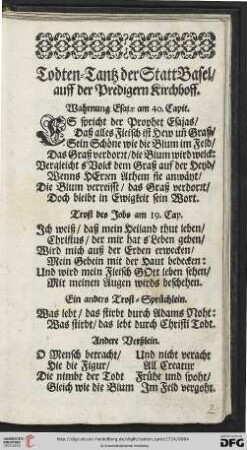 Todten-Tantz der Statt Basel/
auff der Predigern Kirchhoff.
Wahrnung Esajæ am 40. Capit.
ES spricht der Prophet Esajas/
Daß alles Fleisch ist Hew uñ Graß/
Sein Schöne wie die Blum im Feld/
Das Graß verdorrt/ die Blum wird welck:
Vergleicht s Volck dem Graß auf der Heyd/
Wenns HErren Athem sie anwäht/
Die Blum verreifft/ das Graß verdorrt/
Doch bleibt in Ewigkeit sein Wort.
Trost des Jobs am 19. Cap.
Ich weiß/ daß mein Heiland thut leben/
Christus/ der mir hat s Leben geben/
Wird mich auß der Erden erwecken/
Mein Gebein mit der Haut bedecken:
Und wird mein Fleisch GOtt leben sehen/
Mit meinen Augen werds beschehen.
Ein anders Trost-Sprüchlein.
Was lebt/ das stirbt durch Adams Noht:
Was stirbt/ das lebt durch Christi Todt.
Andere Verßlein.
O Mensch betracht/ Und nicht veracht
Hie die Figur/ All Creatur
Die nimbt der Todt Frühe und spoht/
Gleich wie die Blum Im Feld vergoht.
2